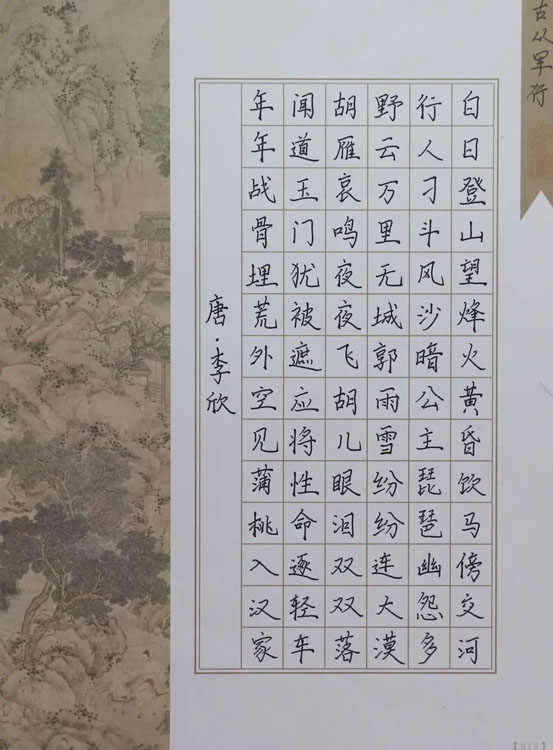 古从军行
白日登山望烽火黄昏饮马傍交河
行人刁斗风沙暗公主琵琶幽怨多
野云万里无城郭雨雪纷纷连大漠
胡雁哀鸣夜夜飞胡儿眼泪双双落
闻道玉门犹被遮应将性命逐轻车
年年战骨埋荒外空见蒲桃入汉家
唐·李欣